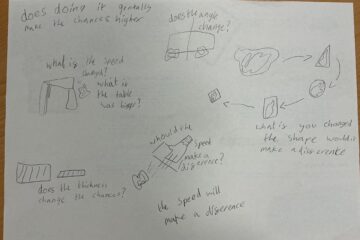 does doing it gentally
make the chances higher
does the angle
change?
what is the speed
changed?
what is
the table
was bigger?
what is you changed
the shape would it
make a difference
whould the
speed
make a
difference?
does the thickness
change the chances?
the speed will
make a difference